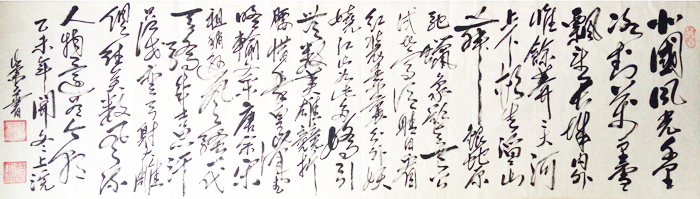 北國風光千里
冰封萬里雪
飄望長城內外
惟餘莽莽大河
上下頓失滔滔山
舞銀蛇原
馳蠟象欲與天公
試比高須晴日看
紅裝素裹分外妖
嬈江山如此多嬌引
無數英雄競折
腰惜秦皇漢武
略輸文采唐宗宋
祖稍遜風騷一代
天驕成吉思汗
只識彎弓射大雕
俱往矣數風流
人物還看今朝
乙未年開冬上浣